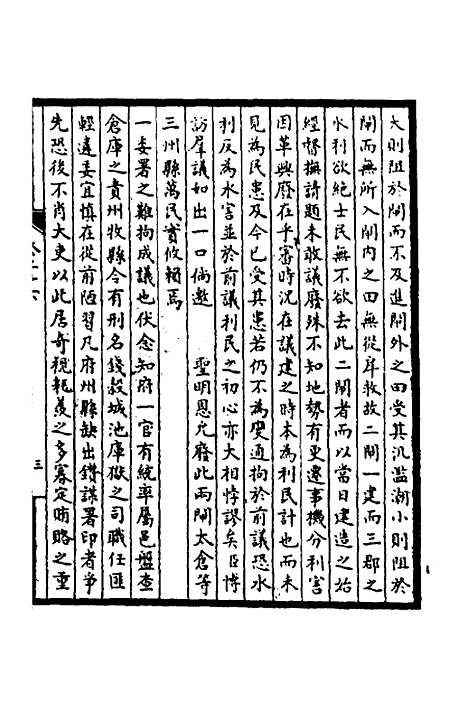 大則阻於閘而不及進閘外之田受其汎濫潮小則阻於
閘而無所入閘内之田無從戽救故二閘一建而三郡之
水利欲絶士民無不欲去此二閘者而以當日建造之始
經督撫請題未敢議廢殊不知地勢有更遷事機分利害
因革興廢在乎審時况在議建之時本為利民計也而未
見為民患及今已受其患若仍不為變通拘於前議恐水
利反為水害並於前議利民之初心亦大相悖謬矣臣博
訪羣議如出一口倘邀　聖明恩允廢此兩閘太倉等
三州縣萬民實攸賴焉
一委署之難拘成議也伏念知府一官有統率屬邑盤查
倉庫之責州牧縣令有刑名錢穀城池庫獄之司職任匪
輕遴委宜慎在從前陋習凡府州縣缺出鑽謀署印者爭
先恐後不肖大吏以此居奇視規羨之多寡定賄賂之重
三